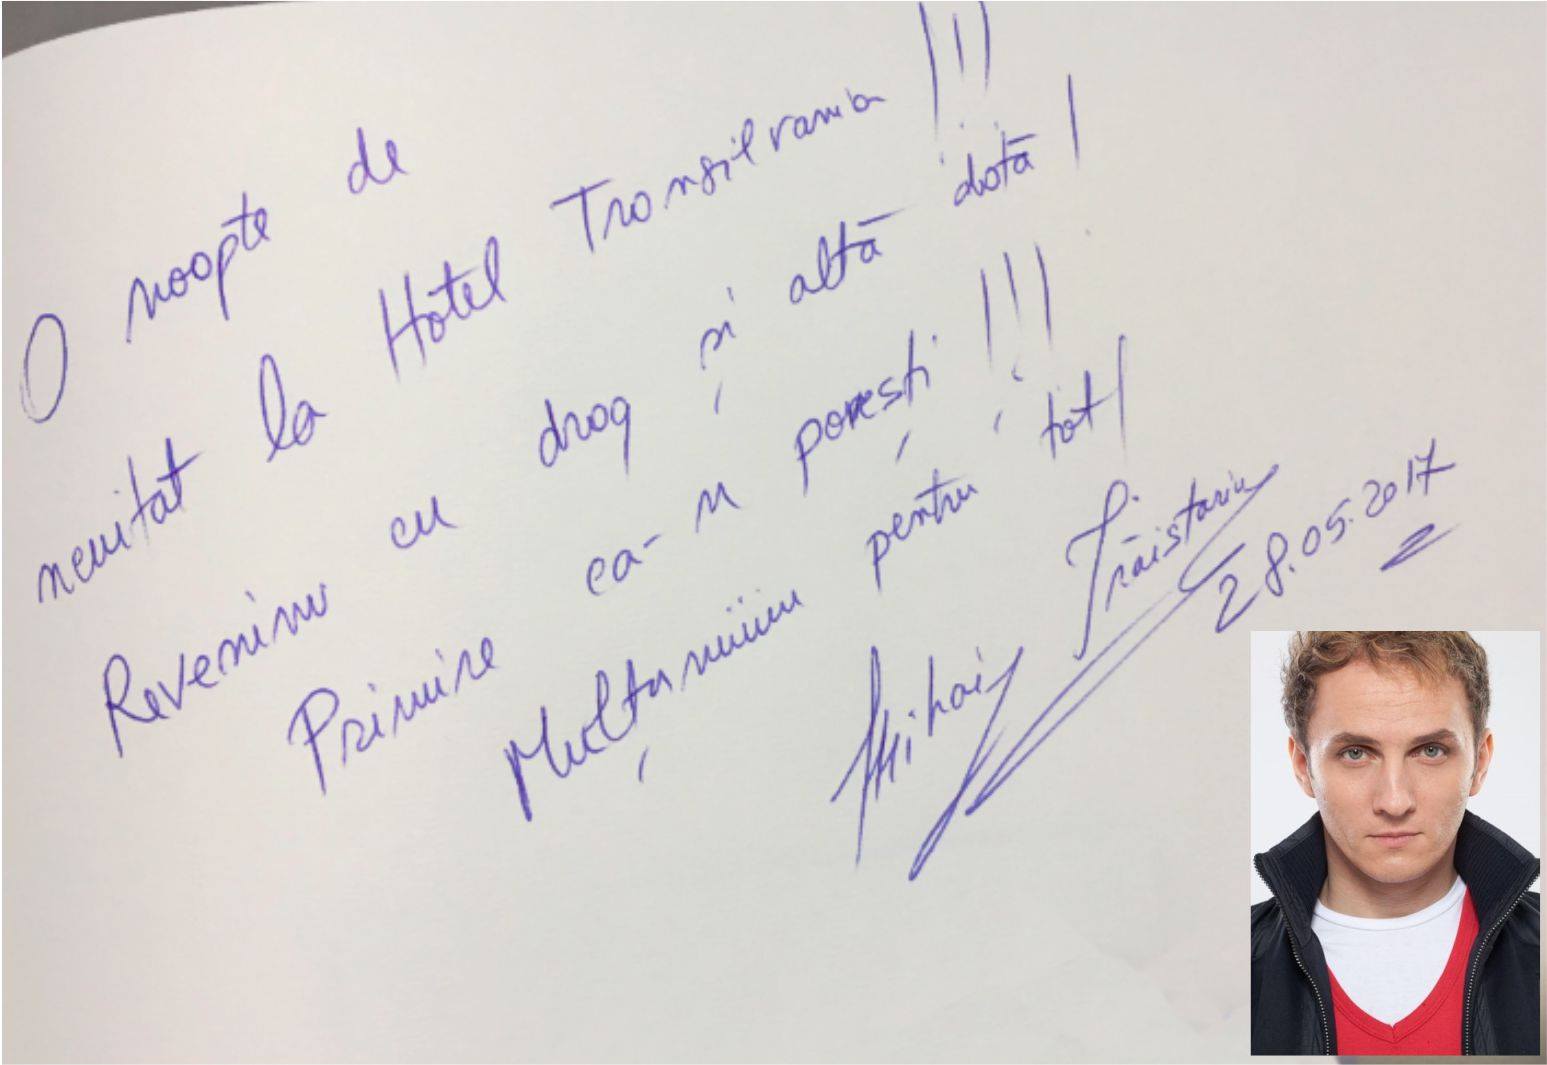 O noapte de
neuitat la Hotel Transilvania !!!
Revenim cu drag și altă dată !
Primire ca-n povești !!!
Mulțumiiim pentru tot !
Mihai Trăistariu
28.05.2017